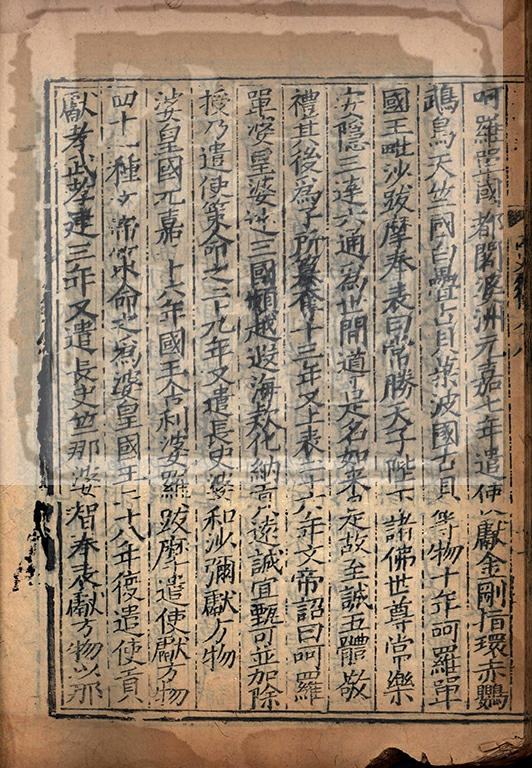 呵羅單國都闍婆洲元嘉七年遣使獻金剛指環赤鸚
鵡鳥天竺國白疊古貝葉波國古貝等物十年呵羅單
國王毗沙跋摩奉表曰常勝天子陛下諸佛世尊常樂
安隱三達六通為世閒道是名如來應故至誠五體敬
禮其後為子所篡奪十三年又上表二十六年文帝詔曰呵羅
單婆皇婆達三國頻越遐海款化納貢遠誠宜甄可並加除
授乃遣使策命之二十九年又遣長史婆和沙彌獻方物
婆皇國元嘉十六年國王舍利婆羅跋摩遣使獻方物
四十一種文帝策命之為婆皇國王二十八年復遣使貢
獻孝武孝建三年又遣長史竺那婆智奉表獻方物以那